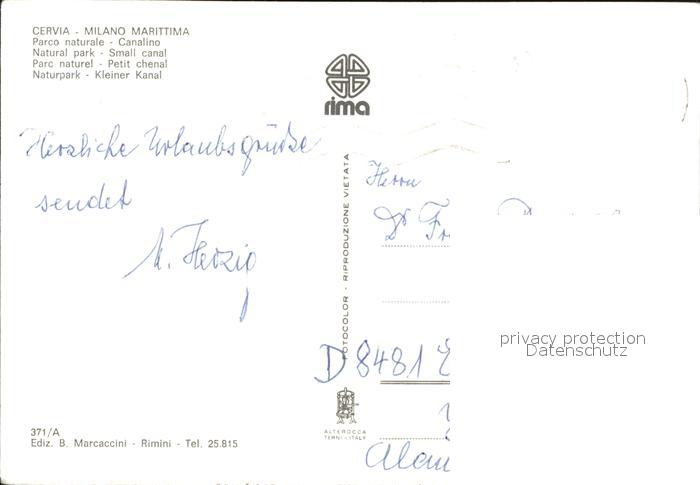 CERVIA - MILANO MARITTIMA
Parco naturale - Canalino
Natural park - Small canal
Parc naturel - Petit chenal
Naturpark - Kleiner Kanal
rima
Herzliche Urlaubsgrüße
sendet
M. Herzig
FOTOCOLOR - RIPRODUZIONE VIETATA
Herrn
Dr Fr
D 8481
privacy protection
Datenschutz
ALTEROCCA
TERNI-ITALY
371/A
Ediz. B. Marcaccini - Rimini - Tel. 25.815